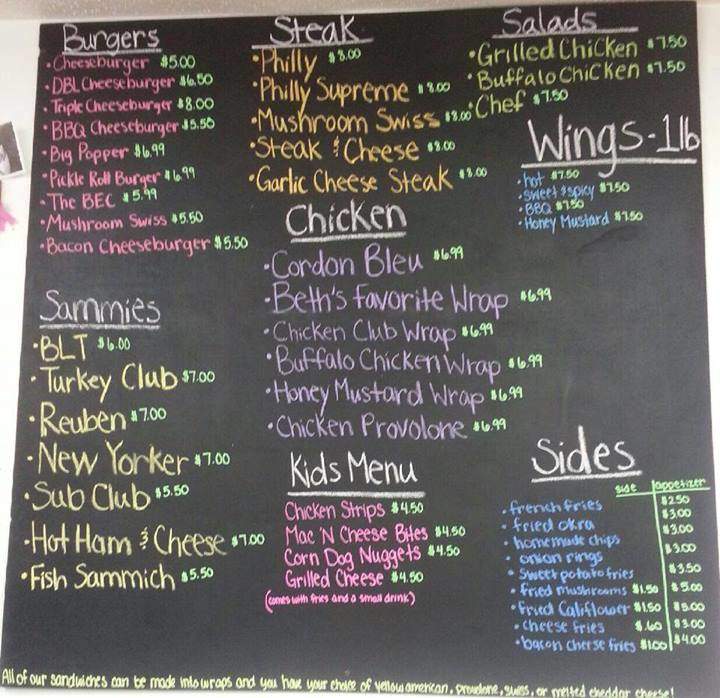 Burgers
• Cheeseburger $5.00
• DBL Cheeseburger $6.50
• Triple Cheeseburger $8.00
• BBQ Cheeseburger $5.50
• Big Popper $6.99
• Pickle Roll Burger $6.99
• The BEC $5.99
• Mushroom Swiss $5.50
• Bacon Cheeseburger $5.50
Sammies
• BLT $6.00
• Turkey Club $7.00
• Reuben $7.00
• New Yorker $7.00
• Sub Club $5.50
• Hot Ham & Cheese $7.00
• Fish Sammich $5.50
Steak
• Philly $8.00
• Philly Supreme $8.00
• Mushroom Swiss $8.00
• Steak & Cheese $8.00
• Garlic Cheese Steak $8.00
Chicken
• Cordon Bleu $6.99
• Beth's Favorite Wrap $6.99
• Chicken Club Wrap $6.99
• Buffalo Chicken Wrap $6.99
• Honey Mustard Wrap $6.99
• Chicken Provolone $6.99
Kids Menu
Chicken Strips $4.50
Mac 'N Cheese Bites $4.50
Corn Dog Nuggets $4.50
Grilled Cheese $4.50
(comes with fries and a small drink)
Salads
• Grilled Chicken $7.50
• Buffalo Chicken $7.50
• Chef $7.50
Wings - 1lb
• hot $7.50
• sweet & spicy $7.50
• BBQ $7.50
• Honey Mustard $7.50
Sides
side appetizer
• french fries $2.50
• fried okra $3.00
• homemade chips $3.00
• onion rings $3.00
• sweet potato fries $3.50
• fried mushrooms $1.50 $5.00
• fried Califlower $1.50 $5.00
• cheese fries $.60 $3.00
• bacon cheese fries $1.00 $4.00
All of our sandwiches can be made into wraps and you have your choice of yellow american, provolone, swiss, or melted cheddar cheese!